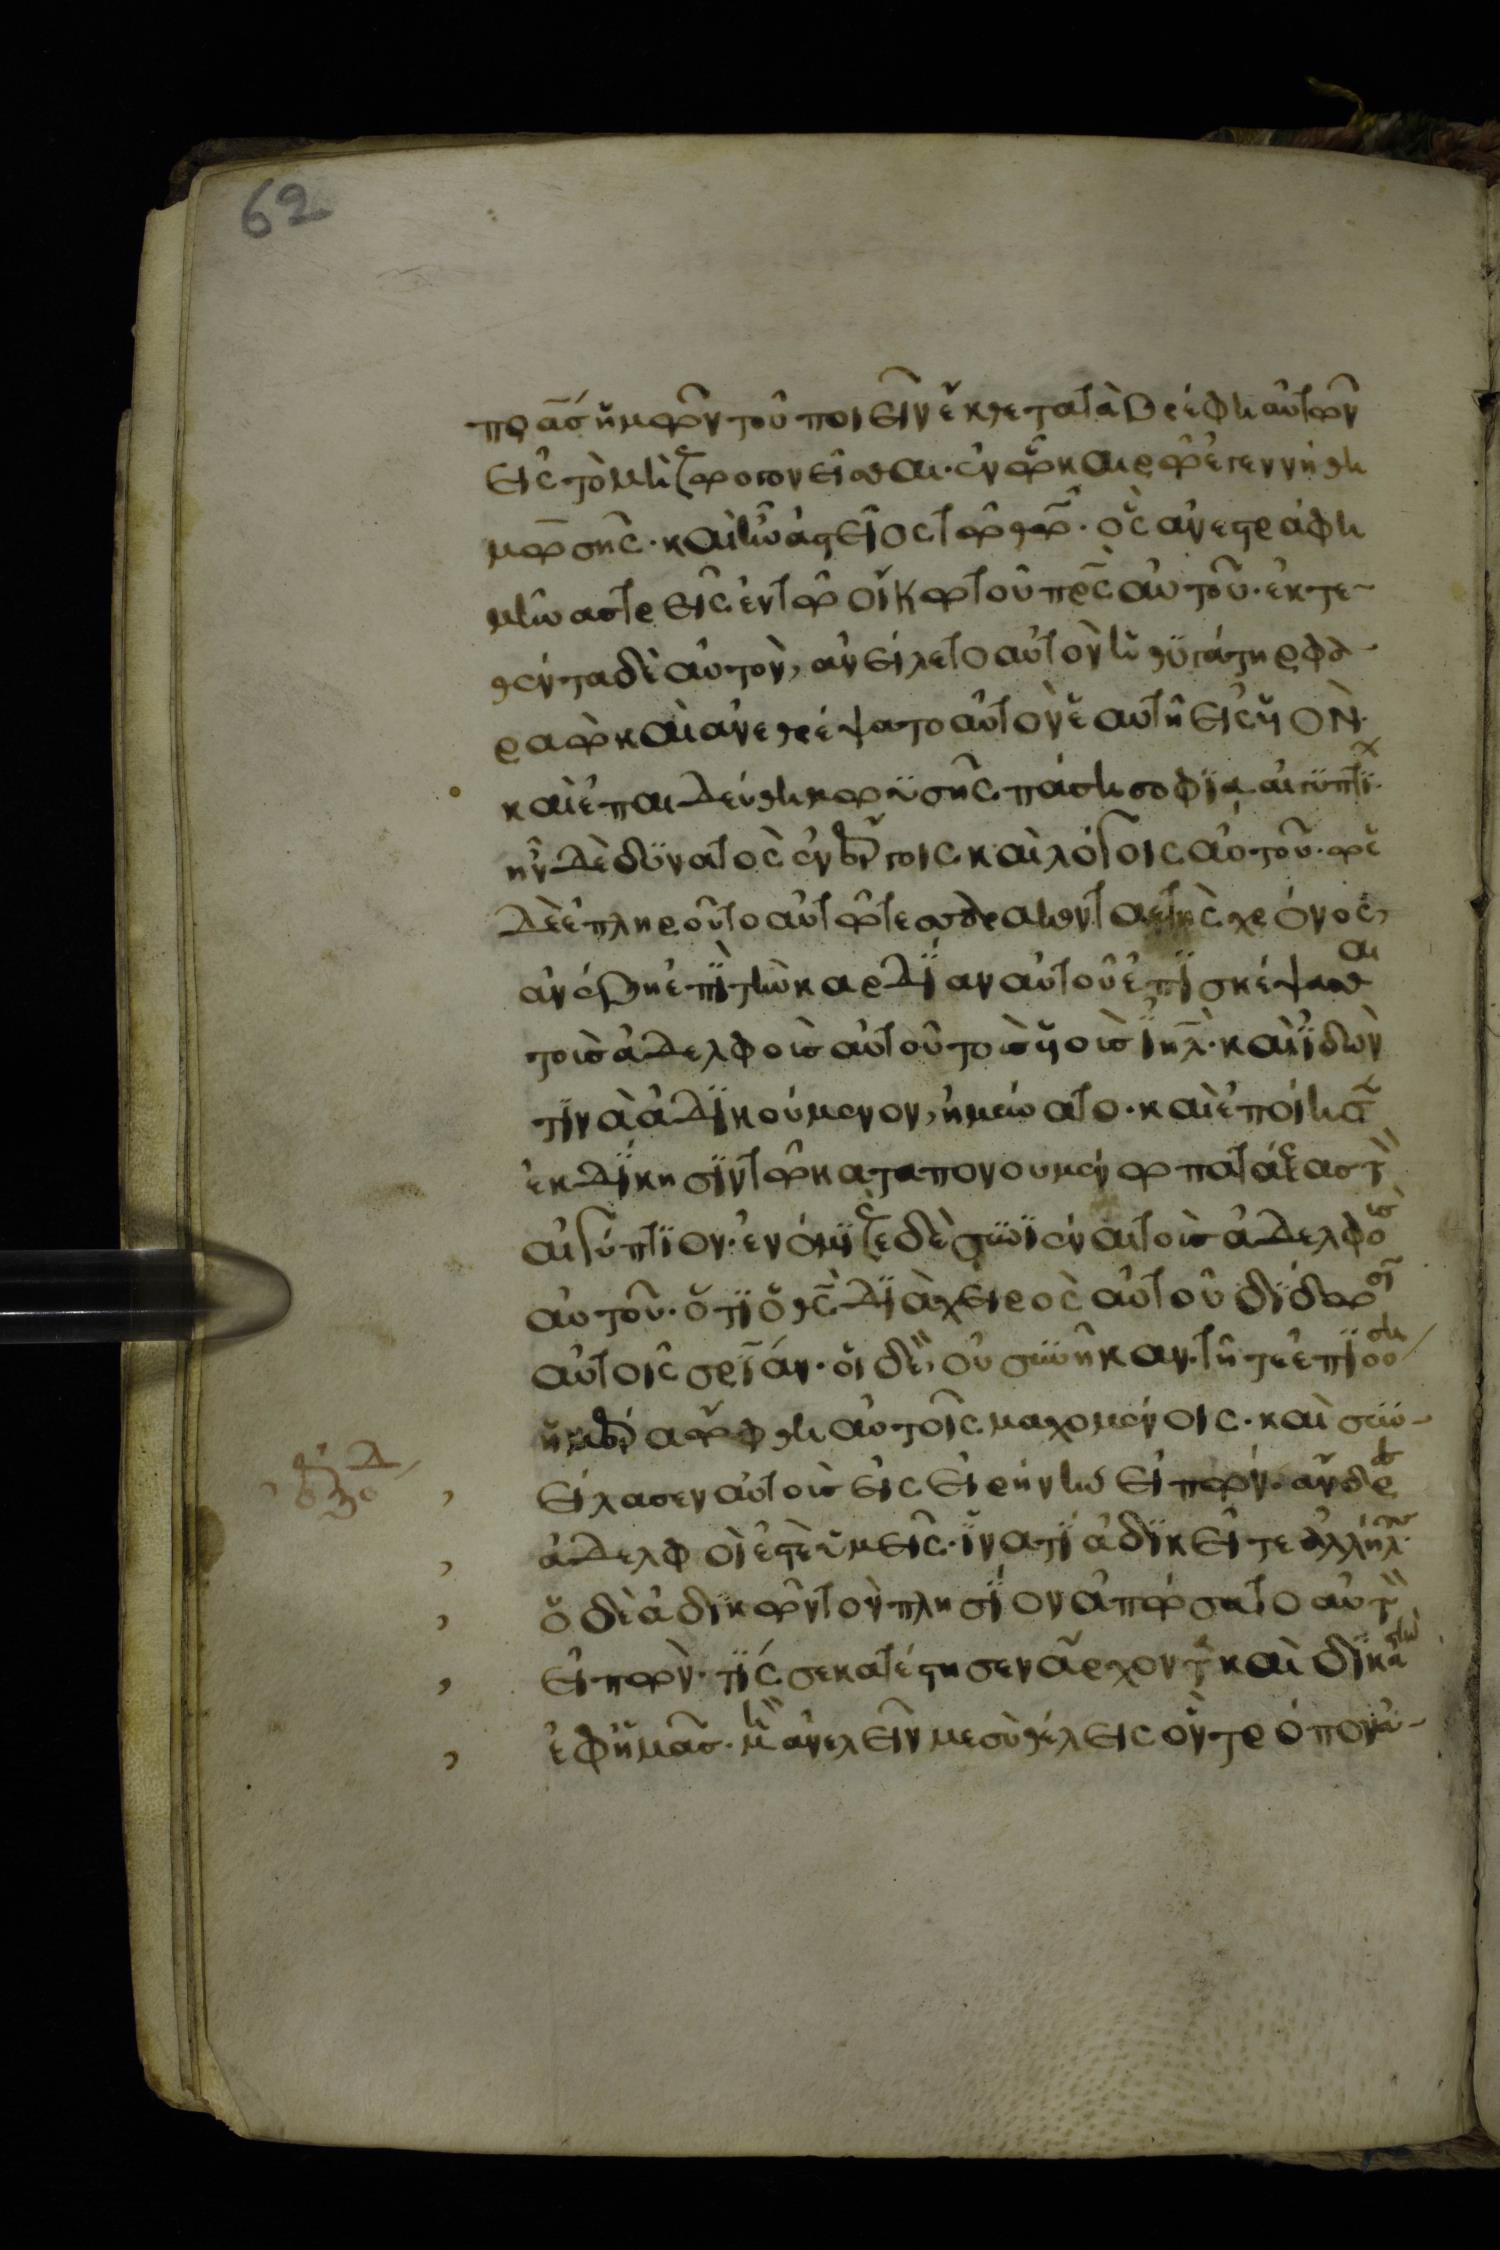 62
πρ̅ας ἡμῶν τοῦ ποιεῖν ἔκθετα τὰ βρέφη αὐτῶν
εἰς τὸ μὴ ζωογονεῖσθαι· ἐν ᾧ καιρῷ ἐγεννήθη
μωσῆς· καὶ ἦν ἀστεῖος τῷ θ̅ω̅· ὃς ἀνετράφη
μῆνας τρεῖς ἐν τῷ οἴκῳ τοῦ πρ̅ς αὐτοῦ· ἐκτε-
θέντα δὲ αὐτὸν, ἀνείλετο αὐτὸν ἡ θϋγάτηρ φα-
ραὼ καὶ ἀνεθρέψατο αὐτὸν ἑαυτῇ εἰς ϋἱὸν·
καὶ ἐπαιδεύθη μωϋσῆς πάσῃ σοφΐᾳ αἰγϋπτΐ·
ἦν δὲ δϋνατὸς ἐν ἔργοις καὶ λόγοις αὐτοῦ· ὡς
δὲ ἐπληροῦτο αὐτῷ τεσσαρακονταετὴς χρόνος,
ἀνέβη ἐπῒ τὴν καρδΐαν αὐτοῦ ἐπϊσκέψασθαι
τοὺς ἀδελφοὺς αὐτοῦ τοὺς ϋἱοὺς ϊη̅λ· καὶ ϊδὼν
τϊνὰ ἀδϊκούμενον, ἠμύνατο· καὶ ἐποίησεν
ἐκδΐκησϊν τῷ καταπονουμένῳ πατάξας τὸν
αἰγύπτϊον· ἐνόμϊζε δὲ συνϊέναι τοὺς ἀδελφοὺς
αὐτοῦ· ὅτϊ ὁ θ̅ς̅ δϊὰ χειρὸς αὐτοῦ δΐδωσιν
αὐτοῖς σρ̅ΐαν· οἱ δὲ, οὐ συνῆκαν. τῇ τε ἐπϊούσῃ
ἡμέρᾳ ὤφθη αὐτοῖς μαχομένοις· καὶ συν-
είλασεν αὐτοὺς εἰς εἰρήνην εἰπών· ἄνδρες
ἀδελφοὶ ἐστὲ ὑμεῖς· ἵνα τΐ ἀδϊκεῖτε ἀλλήλους·
ὁ δὲ ἀδϊκῶν τὸν πλησΐον ἀπώσατο αὐτὸν
εἰπὼν· τΐς σε κατέστησεν ἄρχοντα καὶ δϊκαστὴν
ἐφ ἡμᾶς· μὴ ἀνελεῖν με σὺ θέλεις ὃν τρόπον ἀν-